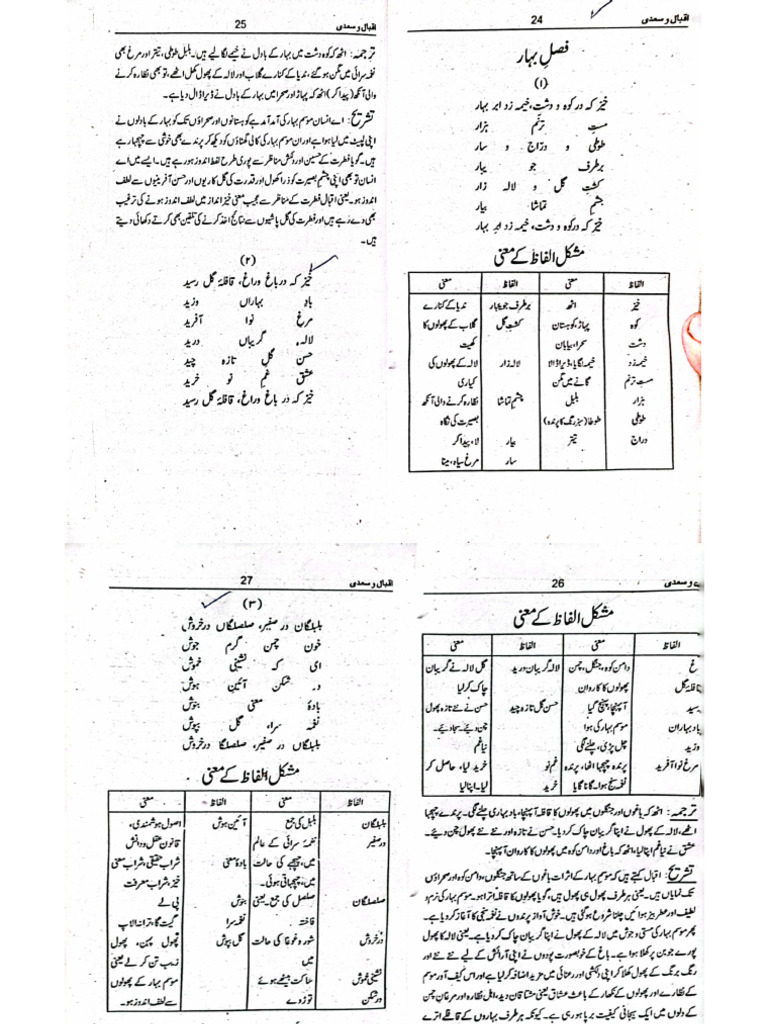 24
اقبال و سعدی
فصلِ بہار
(۱)
خیز کہ در کوہ و دشت، خیمہ زد ابر بہار
مستِ ترنّم ہزار
طوطی و درّاج و سار
برطرف جو یبار
کشتِ گل و لالہ زار
چشمِ تماشا بیار
خیز کہ در کوہ و دشت، خیمہ زد ابر بہار
مشکل الفاظ کے معنی
الفاظ معنی الفاظ معنی
خیز اٹھ برطرف جویبار ندیا کے کنارے
کوہ پہاڑ، کوہستان کشتِ گل گلاب کے پھولوں کا
دشت صحرا، بیابان کھیت
خیمہ زد خیمہ لگایا، ڈیرا ڈالا لالہ زار لالہ کے پھولوں کی
مستِ ترنّم گانے میں مگن کیاری
ہزار بلبل چشمِ تماشا نظارہ کرنے والی آنکھ
طوطی طوطا (سبز رنگ کا پرندہ) بصیرت کی نگاہ
دراج تیتر بیار لا، پیدا کر
سار مرغ سیاہ، مینا
25
اقبال و سعدی
ترجمہ: اٹھ کہ کوہ دشت میں بہار کے بادل نے خیمے لگا لیے ہیں۔ بلبل طوطی، تیتر اور مرغ بھی
نغمہ سرائی میں مگن ہو گئے، ندیا کے کنارے گلاب اور لالہ کے پھول کھل اٹھے، تو بھی نظارہ کرنے
والی آنکھ (پیدا کر) اٹھ کہ پہاڑ اور صحرا میں بہار کے بادل نے ڈیرا ڈال دیا ہے۔
تشریح: اے انسان موسم بہار کی آمد آمد ہے کوہستانوں اور صحراؤں تک کو بہار کے بادلوں نے
اپنی لپیٹ میں لیا ہوا ہے اور ان موسم بہار کی کالی گھٹاؤں کو دیکھ کر پرندے بھی خوشی سے چہچہا رہے
ہیں۔ گویا فطرت کے حسین اور دلکش مناظر سے پوری طرح لطف اندوز ہو رہے ہیں۔ ایسے میں اے
انسان تو بھی اپنی چشم بصیرت کو ذرا کھول اور قدرت کی گل کاریوں اور حسن آفرینیوں سے لطف
اندوز ہو۔ یعنی اقبال فطرت کے مناظر سے عجیب معنی خیز انداز میں لطف اندوز ہونے کی ترغیب
بھی دے رہے ہیں اور فطرت کی گل پاشیوں سے نتائج اخذ کرنے کی تلقین بھی کرتے دکھائی دیتے
ہیں۔
(۲)
خیز کہ در باغ و راغ، قافلۂ گل رسید
بادِ بہاراں وزید
مرغِ نوا آفرید
لالہ گریباں درید
حسن گلِ تازہ چید
عشق غمِ نو خرید
خیز کہ در باغ و راغ، قافلۂ گل رسید
26
و سعدی
مشکل الفاظ کے معنی
الفاظ معنی الفاظ معنی
غ دامن کوہ، جنگل، چمن لالہ گریبان درید گل لالہ نے گریبان
قافلۂ گل پھولوں کا کارواں چاک کر لیا
رسید آپہنچا، پہنچ گیا حسن گل تازہ چید حسن نے تازہ پھول
باد بہاران موسم بہار کی ہوا چن دیئے۔ سجا دیئے۔
وزید چل پڑی، چلنے لگی نیا غم
مرغ نوا آفرید پرندہ چہچہا اٹھا، پرندہ غم نو خرید لیا، حاصل کر
نغمہ سنج ہوا۔ گانا گایا خرید لیا۔ اپنا لیا
ترجمہ: اٹھ کہ باغوں اور جنگلوں میں پھولوں کا قافلہ آپہنچا، باد بہاری چلنے لگی۔ پرندے چہچہا
اٹھے، لالہ کے پھول نے اپنا گریبان چاک کر دیا۔ حسن نے تازہ اور نئے نئے پھول چن دیئے۔
عشق نے نیا غم اپنا لیا، اٹھ کہ باغ اور دامن کوہ میں پھولوں کا کارواں آپہنچا۔
تشریح: اقبال کہتے ہیں کہ موسم بہار کے اثرات باغوں کے ساتھ جنگلوں، دامن کوہ اور صحراؤں
تک نمایاں ہیں۔ یعنی ہر طرف پھول ہی پھول ہیں، گویا پھولوں کا قافلہ اترا ہو۔ موسم بہار کی نرم و
لطیف اور عطر بیز ہوائیں چلنا شروع ہو گئی ہیں۔ خوش آواز پرندوں نے نغمہ سنجی کا آغاز کر دیا ہے۔
موسم بہار کی مستی و جوش میں لالہ کے پھول نے اپنا گریبان چاک کر دیا ہے۔ یعنی لالہ کا پھول
پورے جوبن پر کھلا ہوا ہے۔ باغ کے خوبصورت پودوں نے اپنی آرائش کے لیے نئے نئے اور
رنگ برنگ کے پھول کھلا کر اپنی دلکشی اور رعنائی میں مزید اضافہ کر لیا ہے اور اس کیف آور موسم
کے نظارے اور پھولوں کے نکھار کے باعث عشاق یعنی مشتاقان دید، اہل نظارہ اور مرغان چمن
کے دلوں میں ایک ہیجانی کیفیت برپا ہو رہی ہے۔ کیونکہ ہر طرف بہاروں کے قافلے اترے
27
اقبال و سعدی
(۳)
بلبلگان در صفیر، صلصلگاں در خروش
خون چمن گرم جوش
ای کہ نشینی خموش
در شکن آئین ہوش
بادۂ معنی بنوش
نغمہ سرا، گل بپوش
بلبلگاں در صفیر، صلصلگاں در خروش
مشکل الفاظ کے معنی
الفاظ معنی الفاظ معنی
بلبلگان بلبل کی جمع آئین ہوش اصول ہوشمندی،
در صفیر نغمہ سرائی کے عالم قانون عقل و دانش
میں، چہچہے کی حالت بادۂ معنی شراب حقیقی، شراب معنی
میں، چہچہاتی ہوئی۔ خیز، شراب معرفت
صلصلگان صلصل کی جمع۔ یعنی بنوش پی لے
فاختہ نغمہ سرا گیت گا، ترانہ الاپ
در خروش شور و غوغا کی حالت گل بپوش پھول پہن، پھول
میں زیب تن کر لے یعنی
نشینی خموش خاموش بیٹھے ہوئے موسم بہار کے پھول
در شکن توڑ دے سے لطف اندوز ہو۔